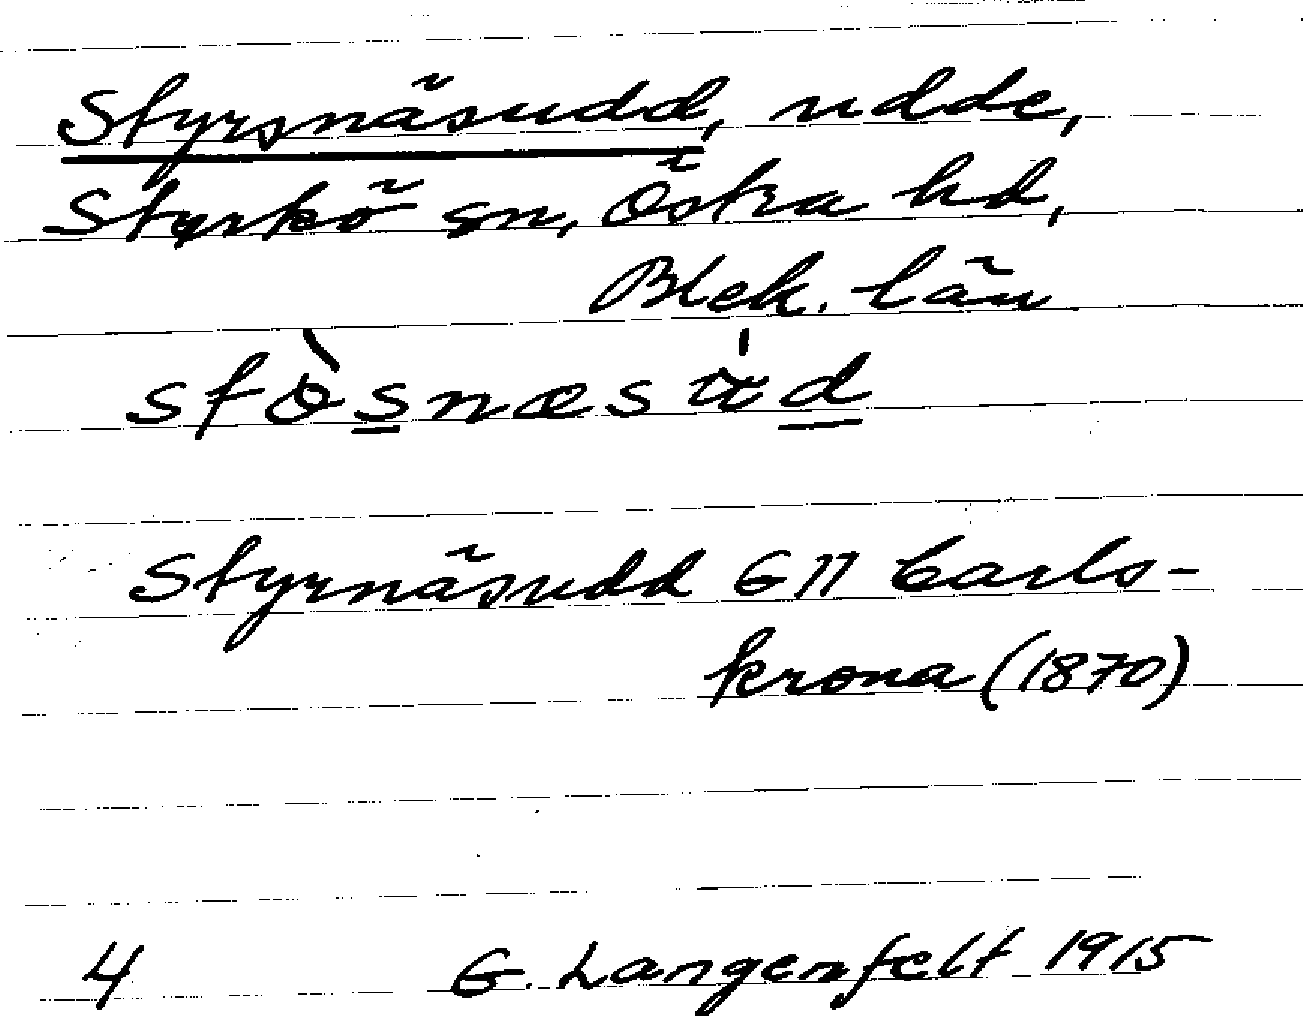 Styrsnäsudd, udde,
Styrkö sn, Östra hd,
Blek. län
Styrnäsudd G II Carls-
krona (1870)
4 G. Langenfelt 1915